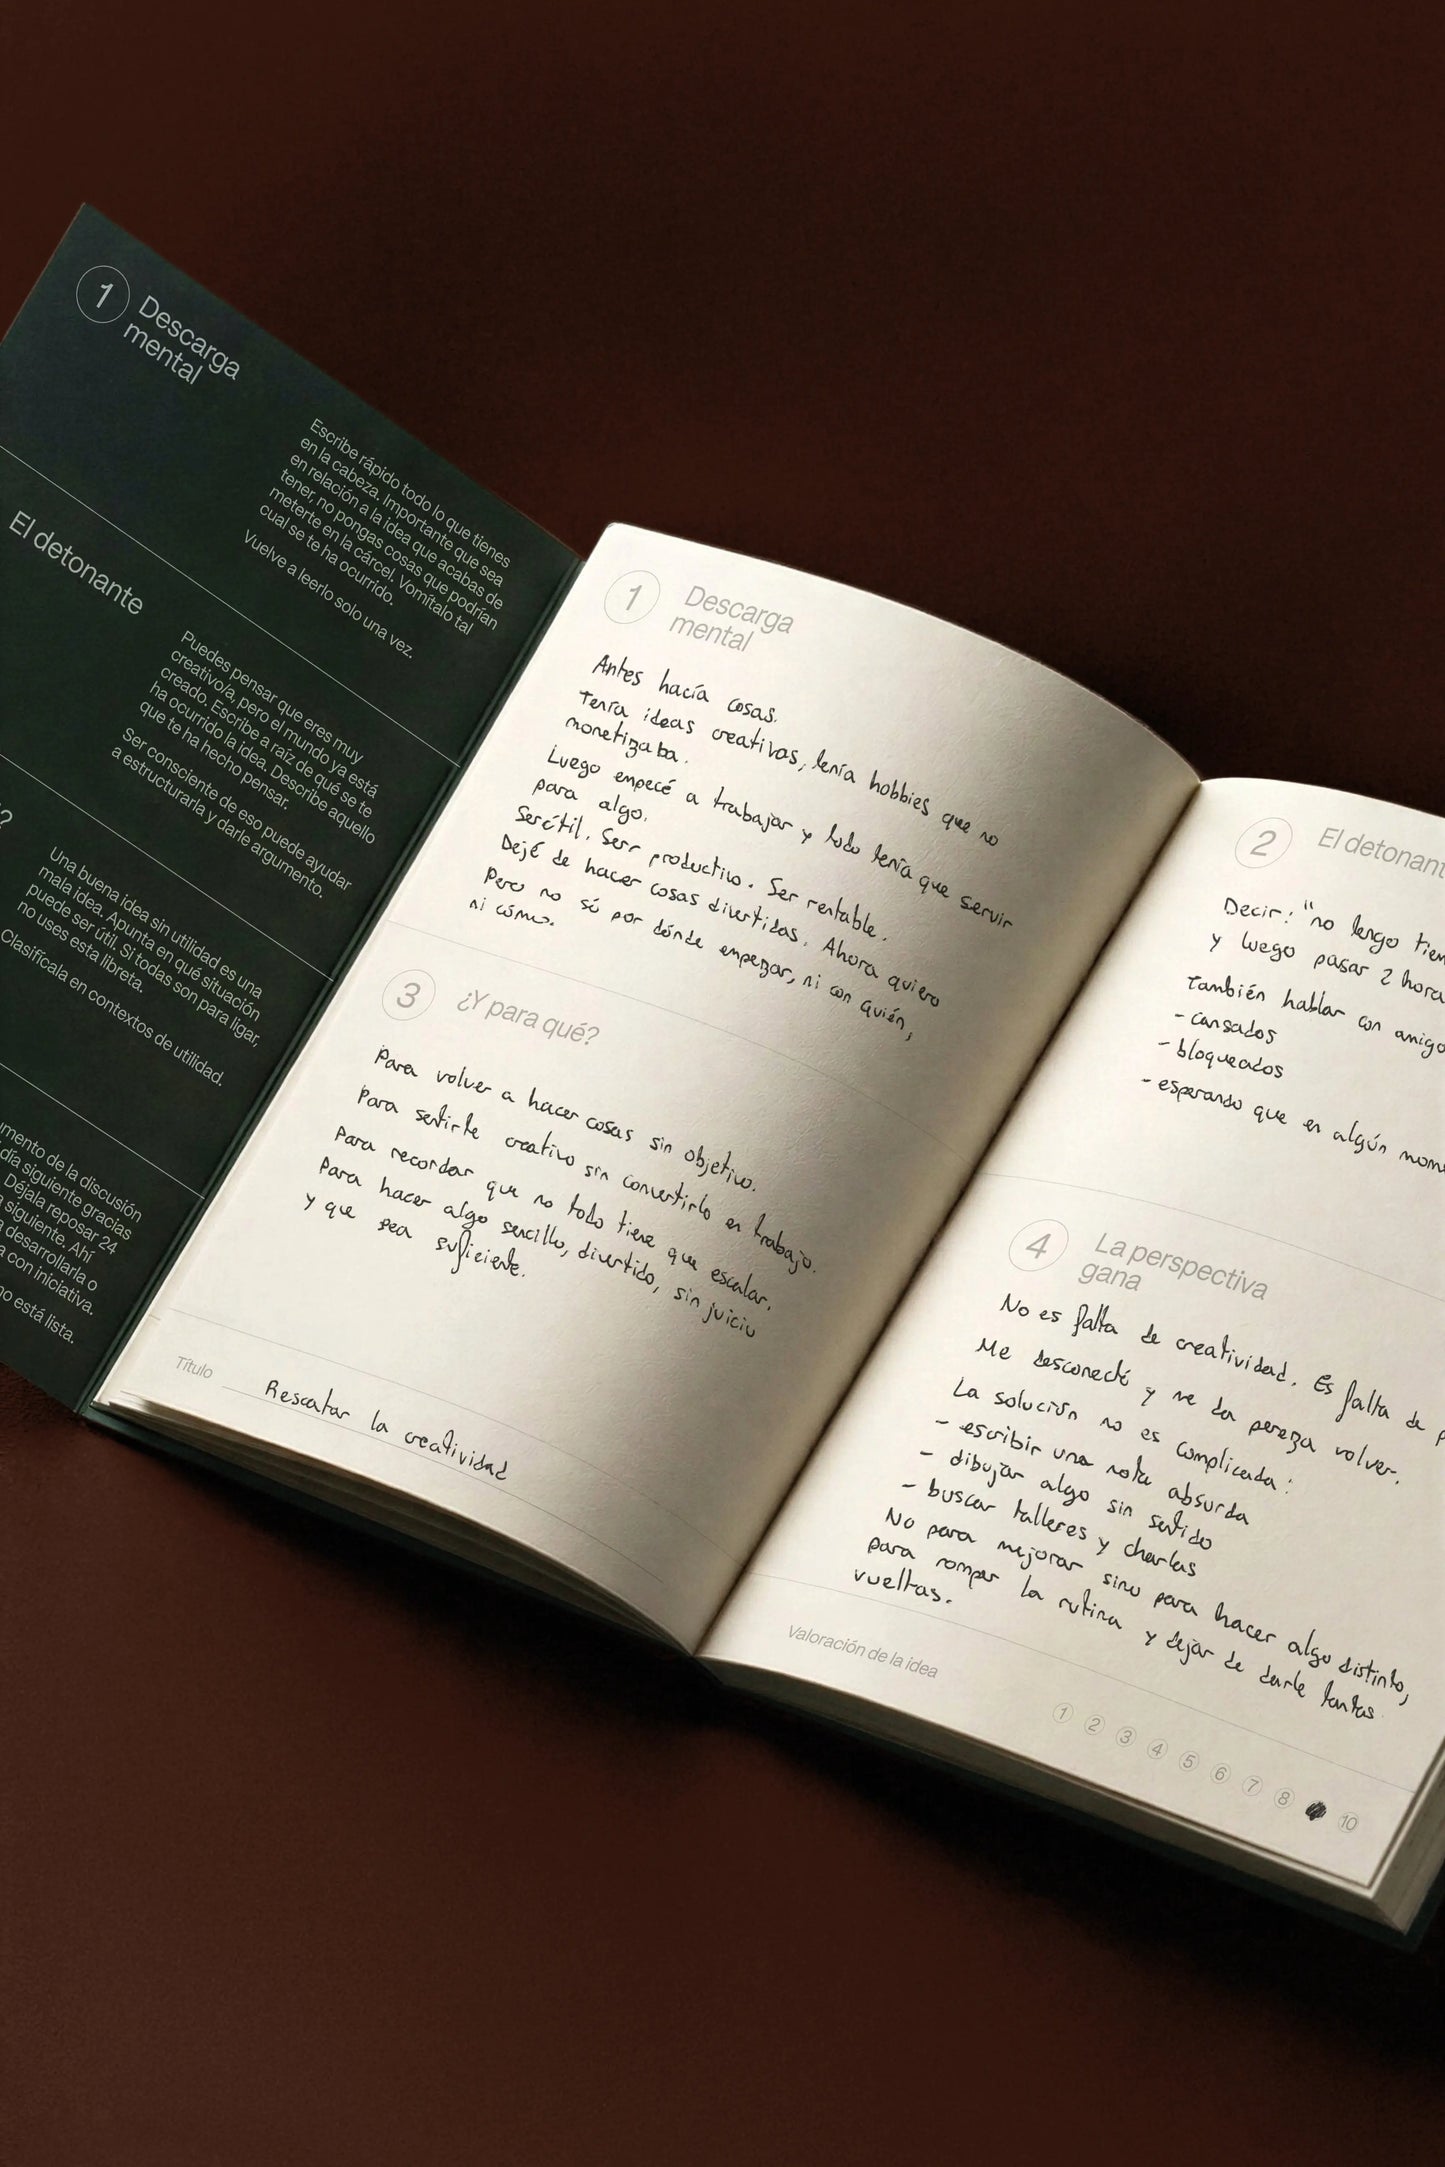 1
Descarga
mental
Escribe rápido todo lo que tienes
en la cabeza. Importante que sea
en relación a la idea que acabas de
tener, no pongas cosas que podrían
meterte en la cárcel. Vomítalo tal
cual se te ha ocurrido.
Vuelve a leerlo solo una vez.
El detonante
Puedes pensar que eres muy
creativo/a, pero el mundo ya está
creado. Escribe a raíz de qué se te
ha ocurrido la idea. Describe aquello
que te ha hecho pensar.
Ser consciente de eso puede ayudar
a estructurarla y darle argumento.
?
Una buena idea sin utilidad es una
mala idea. Apunta en qué situación
puede ser útil. Si todas son para ligar,
no uses esta libreta.
Clasifícala en contextos de utilidad.
umento de la discusión
día siguiente gracias
Déjala reposar 24
siguiente. Ahí
desarrollarla o
a con iniciativa.
no está lista.
1
Descarga
mental
Antes hacía cosas.
Tenía ideas creativas, tenía hobbies que no
monetizaba.
Luego empecé a trabajar y todo tenía que servir
para algo.
Ser útil. Ser productivo. Ser rentable.
Dejé de hacer cosas divertidas. Ahora quiero
Pero no sé por dónde empezar, ni con quién,
ni cómo.
3
¿Y para qué?
Para volver a hacer cosas sin objetivo.
Para sentirte creativo sin convertirlo en trabajo.
Para recordar que no todo tiene que escalar.
Para hacer algo sencillo, divertido, sin juicio
y que sea suficiente.
Título
Rescatar la creatividad
2
El detonant
Decir: "no tengo tiem
y luego pasar 2 hora
También hablar con amigo
- cansados
- bloqueados
- esperando que en algún mom
4
La perspectiva
gana
No es falta de creatividad. Es falta de
Me desconecté y me da pereza volver.
La solución no es complicada:
- escribir una nota absurda
- dibujar algo sin sentido
- buscar talleres y charlas
No para mejorar sino para hacer algo distinto,
para romper la rutina y dejar de darle tantas
vueltas.
Valoración de la idea
1 2 3 4 5 6 7 8 10